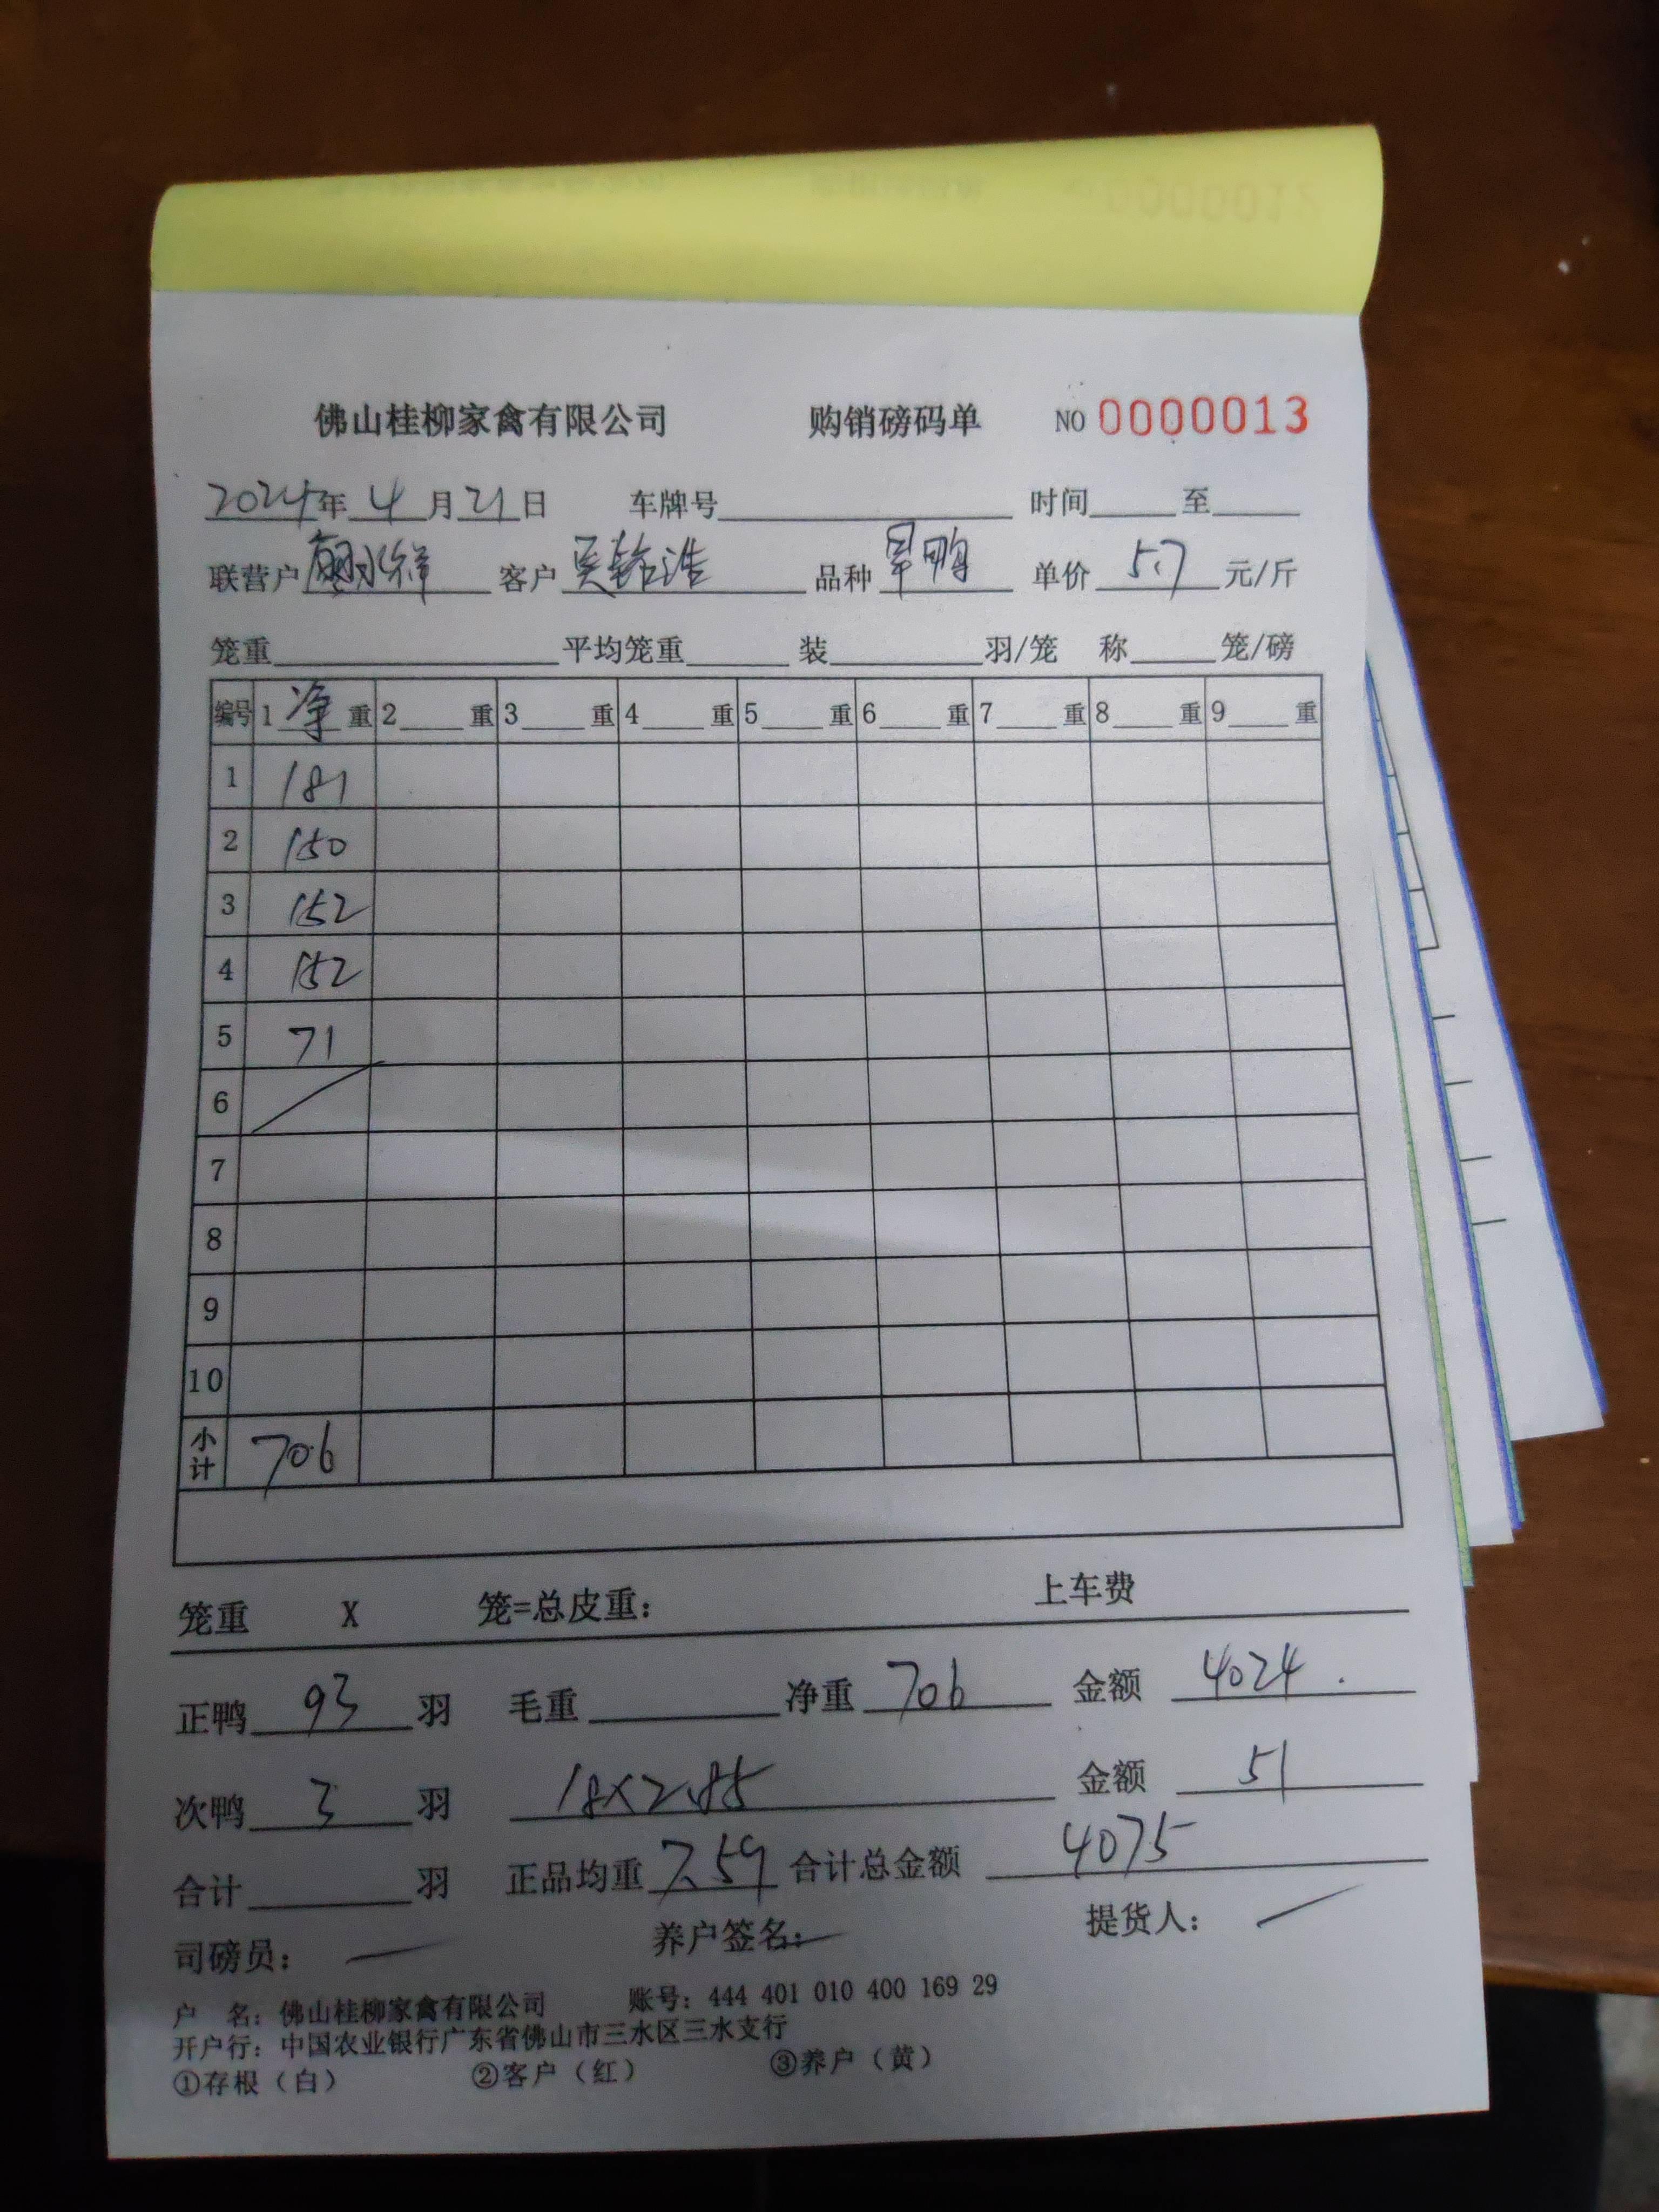 佛山桂柳家禽有限公司 购销磅码单 NO 0000013
2024年 4 月 21 日 车牌号 时间 至
联营户 客户 吴 浩 品种 旱鸭 单价 5.7 元/斤
笼重 平均笼重 装 羽/笼 称 笼/磅
编号 1 净 重 2 重 3 重 4 重 5 重 6 重 7 重 8 重 9 重
1 181
2 150
3 152
4 152
5 71
6
7
8
9
10
小计 706
笼重 X 笼=总皮重: 上车费
正鸭 93 羽 毛重 净重 706 金额 4024.
次鸭 3 羽 18×2.85 金额 51
合计 羽 正品均重 7.59 合计总金额 4075
司磅员: 养户签名: 提货人:
户 名: 佛山桂柳家禽有限公司 账号: 444 401 010 400 169 29
开户行: 中国农业银行广东省佛山市三水区三水支行
①存根（白） ②客户（红） ③养户（黄）